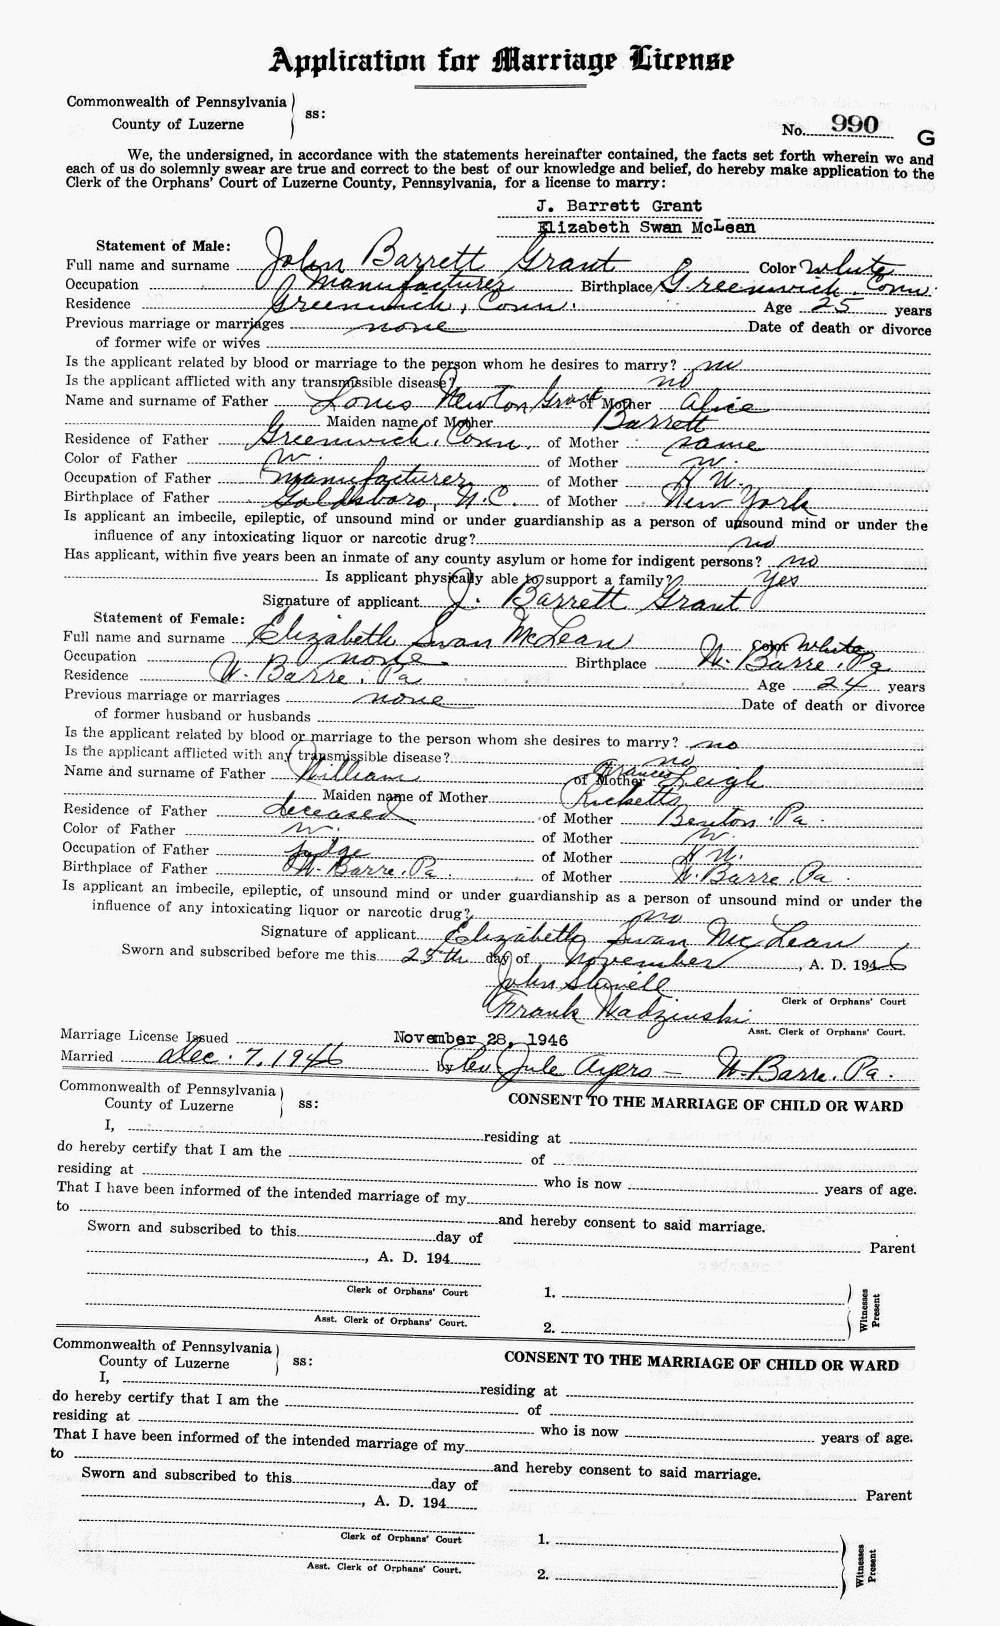 Application for Marriage License
Commonwealth of Pennsylvania
County of Luzerne
ss:
No. 990 G
We, the undersigned, in accordance with the statements hereinafter contained, the facts set forth wherein we and
each of us do solemnly swear are true and correct to the best of our knowledge and belief, do hereby make application to the
Clerk of the Orphans' Court of Luzerne County, Pennsylvania, for a license to marry:
J. Barrett Grant
Elizabeth Swan McLean
Statement of Male:
Full name and surname John Barrett Grant Color White
Occupation Manufacturer Birthplace Greenwich, Conn.
Residence Greenwich, Conn. Age 25 years
Previous marriage or marriages none Date of death or divorce
of former wife or wives
Is the applicant related by blood or marriage to the person whom he desires to marry? no
Is the applicant afflicted with any transmissible disease? no
Name and surname of Father Louis Newton Grant of Mother Alice
Maiden name of Mother Barrett
Residence of Father Greenwich, Conn. of Mother same
Color of Father W. of Mother W.
Occupation of Father manufacturer of Mother H.W.
Birthplace of Father Goldsboro, N.C. of Mother New York
Is applicant an imbecile, epileptic, of unsound mind or under guardianship as a person of unsound mind or under the
influence of any intoxicating liquor or narcotic drug? no
Has applicant, within five years been an inmate of any county asylum or home for indigent persons? no
Is applicant physically able to support a family? Yes
Signature of applicant J. Barrett Grant
Statement of Female:
Full name and surname Elizabeth Swan McLean Color White
Occupation none. Birthplace W. Barre, Pa
Residence W. Barre, Pa Age 24 years
Previous marriage or marriages none Date of death or divorce
of former husband or husbands
Is the applicant related by blood or marriage to the person whom she desires to marry? no
Is the applicant afflicted with any transmissible disease? no
Name and surname of Father William of Mother Frances Leigh
Maiden name of Mother Ricketts
Residence of Father deceased of Mother Benton, Pa.
Color of Father W. of Mother W.
Occupation of Father Judge of Mother H.W.
Birthplace of Father W. Barre, Pa. of Mother W. Barre, Pa.
Is applicant an imbecile, epileptic, of unsound mind or under guardianship as a person of unsound mind or under the
influence of any intoxicating liquor or narcotic drug? no
Signature of applicant Elizabeth Swan McLean
Sworn and subscribed before me this 25th day of November, A. D. 1946
John
Clerk of Orphans' Court
Frank Nadzinski
Asst. Clerk of Orphans' Court.
Marriage License Issued November 28, 1946
Married Dec. 7, 1946 by Rev. Jule Ayers — W. Barre, Pa.
Commonwealth of Pennsylvania
County of Luzerne
ss:
CONSENT TO THE MARRIAGE OF CHILD OR WARD
I, residing at
do hereby certify that I am the of
residing at who is now years of age.
That I have been informed of the intended marriage of my
to and hereby consent to said marriage.
Sworn and subscribed to this day of
Parent
, A. D. 194
Clerk of Orphans' Court
1.
Asst. Clerk of Orphans' Court.
2.
Witnesses
Present
Commonwealth of Pennsylvania
County of Luzerne
ss:
CONSENT TO THE MARRIAGE OF CHILD OR WARD
I, residing at
do hereby certify that I am the of
residing at who is now years of age.
That I have been informed of the intended marriage of my
to and hereby consent to said marriage.
Sworn and subscribed to this day of
Parent
, A. D. 194
Clerk of Orphans' Court
1.
Asst. Clerk of Orphans' Court.
2.
Witnesses
Present